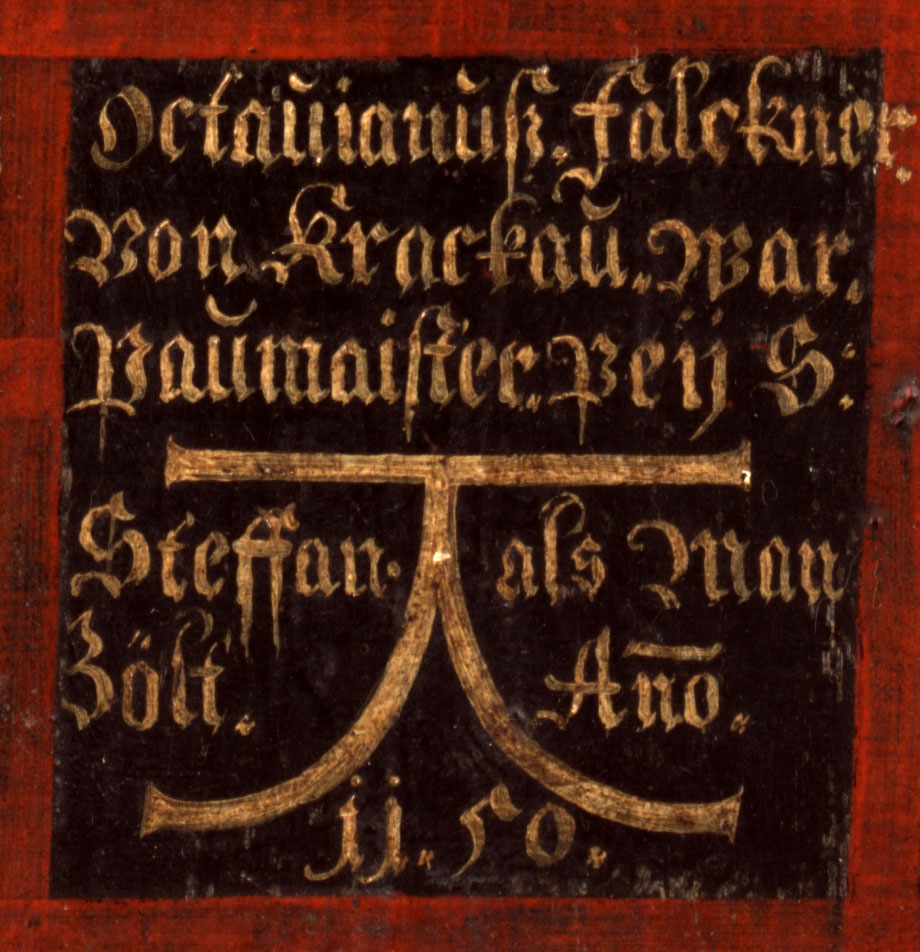 Octaŭianŭß. falckner.
Von Krackaŭ. War.
Paŭmaister. Peÿ S:
Steffan. als Man
Zölt. An̄o.
ii. 50.